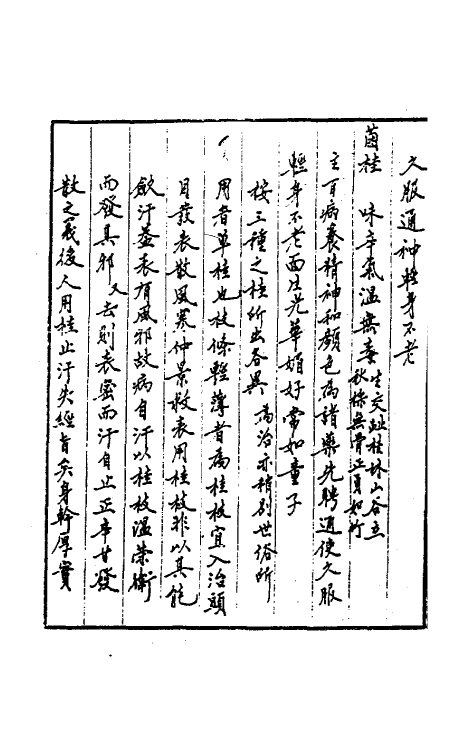 久服通神輕身不老
菌桂　味辛氣溫無毒生交趾桂林山谷立
秋採無骨正月如竹
主百病養精神和顏色為諸藥先聘通使久服
輕身不老面生光華媚好常如童子
按三種之桂所出各異為治亦稍別世俗所
用者單桂也枝條輕薄者為桂枝宜入治頭
目發表散風寒仲景救表用桂枝非以其能
歛汗葢表有風邪故病自汗以桂枝溫榮衛
而發其邪又去則表密而汗自止正辛甘發
散之義後人用桂止汗失經旨矣身幹厚實